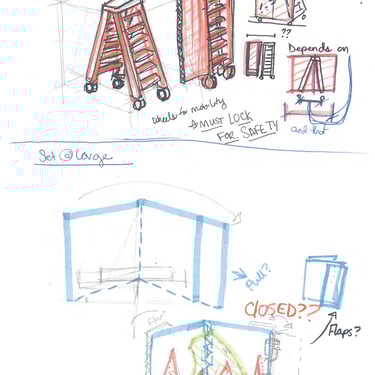 ??
Depends on
and that
wheels for mobility
MUST LOCK
FOR SAFETY
Set @ Large
Pull?
CLOSED??
Flaps?
Flap